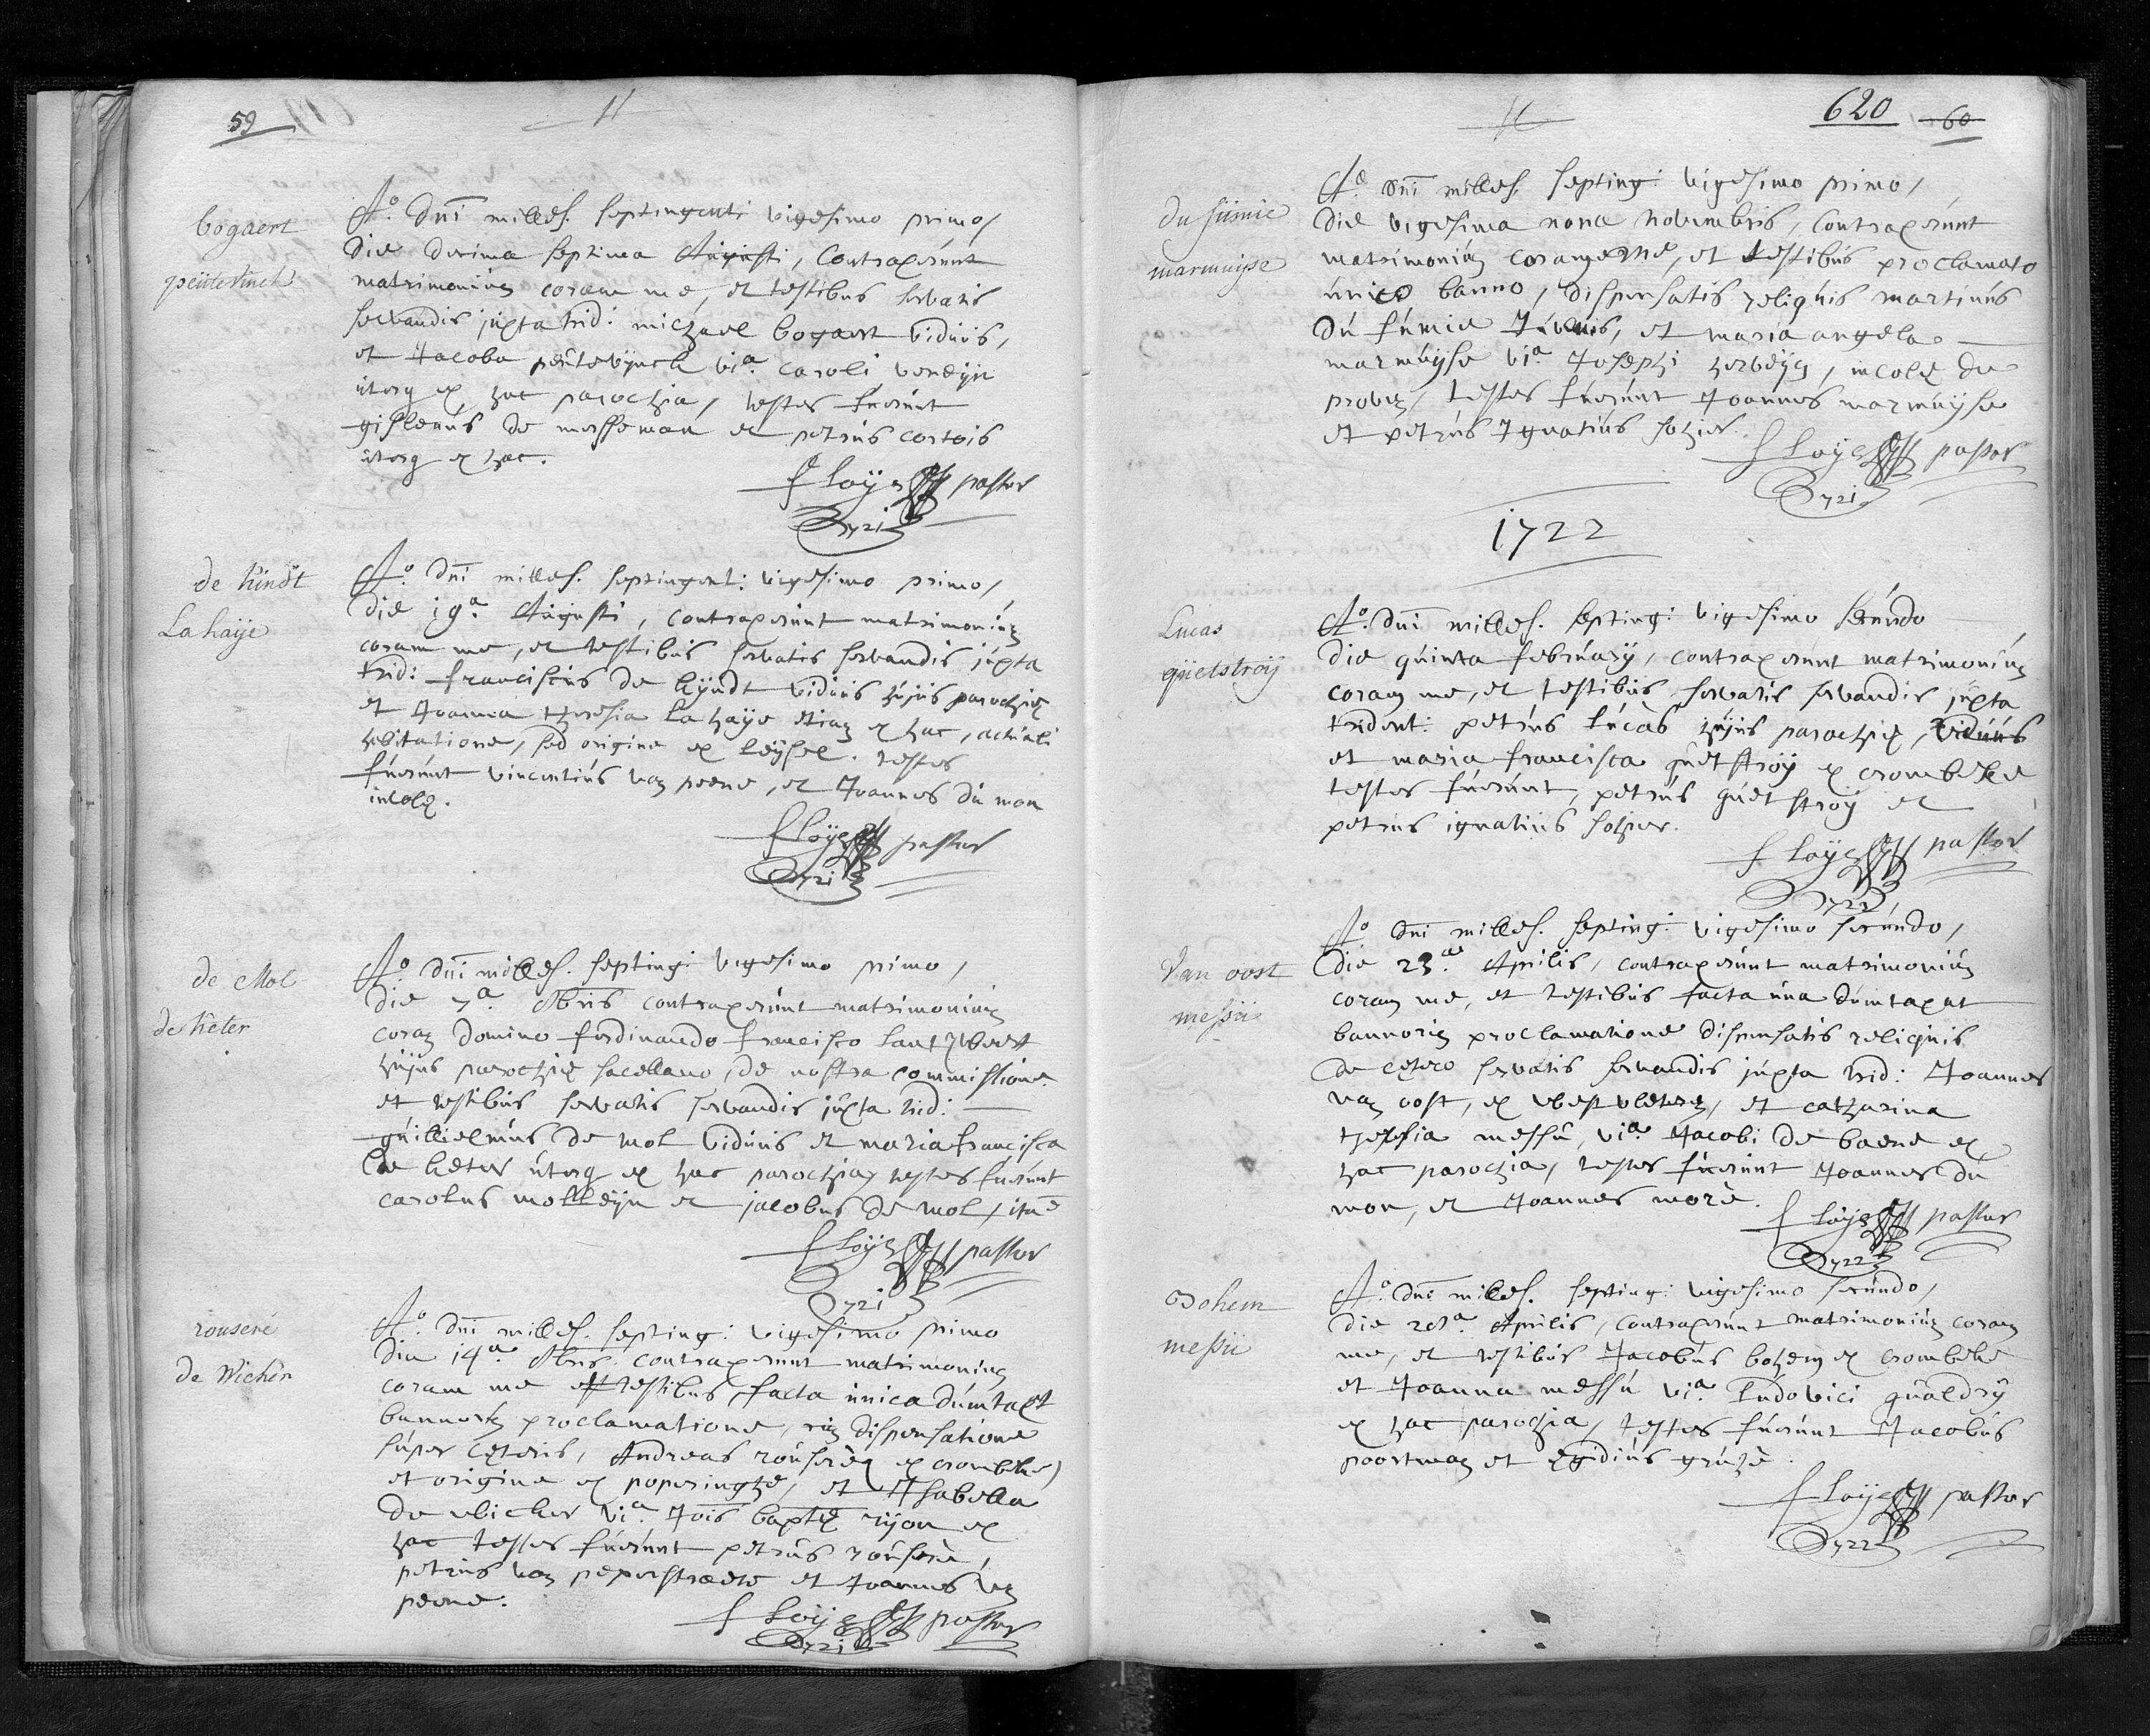 59
bogaert
peütevinck
A.o dni milles. septingenti vigesimo primo,
die decima septima Augusti, contraxerunt
matrimoniu coram me, et testibus servatis
servandis juxta trid: michael bogaert viduus,
et Jacoba peutevynck vi.a caroli
utorq ex hac parochia, testes fuerunt
gislenus de messeman et petrus cortois
utorq ex hac.
f Loys pastor
1721
de kindt
La haÿe
A.o dni milles. septingent: vigesimo primo,
die 19.a Augusti, contraxerunt matrimoniu
coram me, et testibus servatis servandis juxta
trid: franciscus de kyndt viduus hujus parochiæ
et Joanna theresia la haÿe etia ex hac, actuali
habitatione, sed origine ex leÿsel. testes
fuerunt vincentius van peene, et Joannes du mon
incolæ.
f Loys pastor
1721
de Mol
de keter
A.o dni milles. septing: vigesimo primo,
die 7.a 8bris contraxerunt matrimoniu
cora domino ferdinando francisco
hujus parochiæ sacellano, de nostra commissione
et testibus servatis servandis juxta trid:
guillielmus de mol viduus et maria francisca
de keter utorq ex hac parochia, testes fuerunt
carolus molleÿn et jacobus de mol,
f Loys pastor
1721
rouseré
de Wicher
A.o dni milles. septing: vigesimo primo
die 14.a 8bris. contraxerunt matrimoniu
coram me et testibus, facta unica dumtaxt
bannoru proclamatione, cu dispensatione
super cæteris, Andreas rouserè ex crombeke,
et origine ex poperinghe, et Isabella
de wicher vi.a Jois baptæ rijon ex
hac testes fuerunt petrus rouserè,
petrus van peperstraete et Joannes va
peene.
f Loys pastor
1721
620 60
du fümié
marmuÿse
A.o dni milles. septing: vigesimo primo,
die vigesima nona novembris, contraxerunt
matrimoniu coram me, et testibus proclamato
unico banno, dispensatis reliquis martinus
du fumie Juvenis, et maria angela
marmuÿse vi.a Josephi herveÿn, incolæ de
testes fuerunt Joannes marmuÿse
et petrus Ignatius sohier.
f Loys pastor
1721
1722
Lucas
güetstroÿ
A.o dni milles. septing: vigesimo secundo
die quinta februarÿ, contraxerunt matrimoniu
coram me, et testibus, servatis servandis juxta
trident: petrus lucas hujus parochiæ, viduus
et maria francisca guetstroÿ ex crombeke
testes fuerunt, petrus guetstroÿ et
petrus ignatius sohier.
f Loys pastor
1722
Van oost
messü
A.o dni milles. septing: vigesimo secundo,
die 23.a Aprilis, contraxerunt matrimoniu
coram me, et testibus facta una dumtaxat
bannoru proclamatione dispensatis reliquis
de cætero servatis servandis juxta trid: Joannes
van oost, ex westvleteren, et catharina
theresia messu, vi.a Jacobi de baene ex
hac parochia, testes fuerunt Joannes du
mon, et Joannes morè.
f Loys pastor
1722
Bohem
messü
A.o dni milles. septing: vigesimo secundo,
die 28.a Aprilis, contraxerunt matrimoniu coram
me, et testibus Jacobus bohem ex crombeke
et Joanna messu vi.a ludovici gualdrÿ
ex hac parochia, testes fuerunt Jacobus
poortman et egidius gruhè.
f Loys pastor
1722